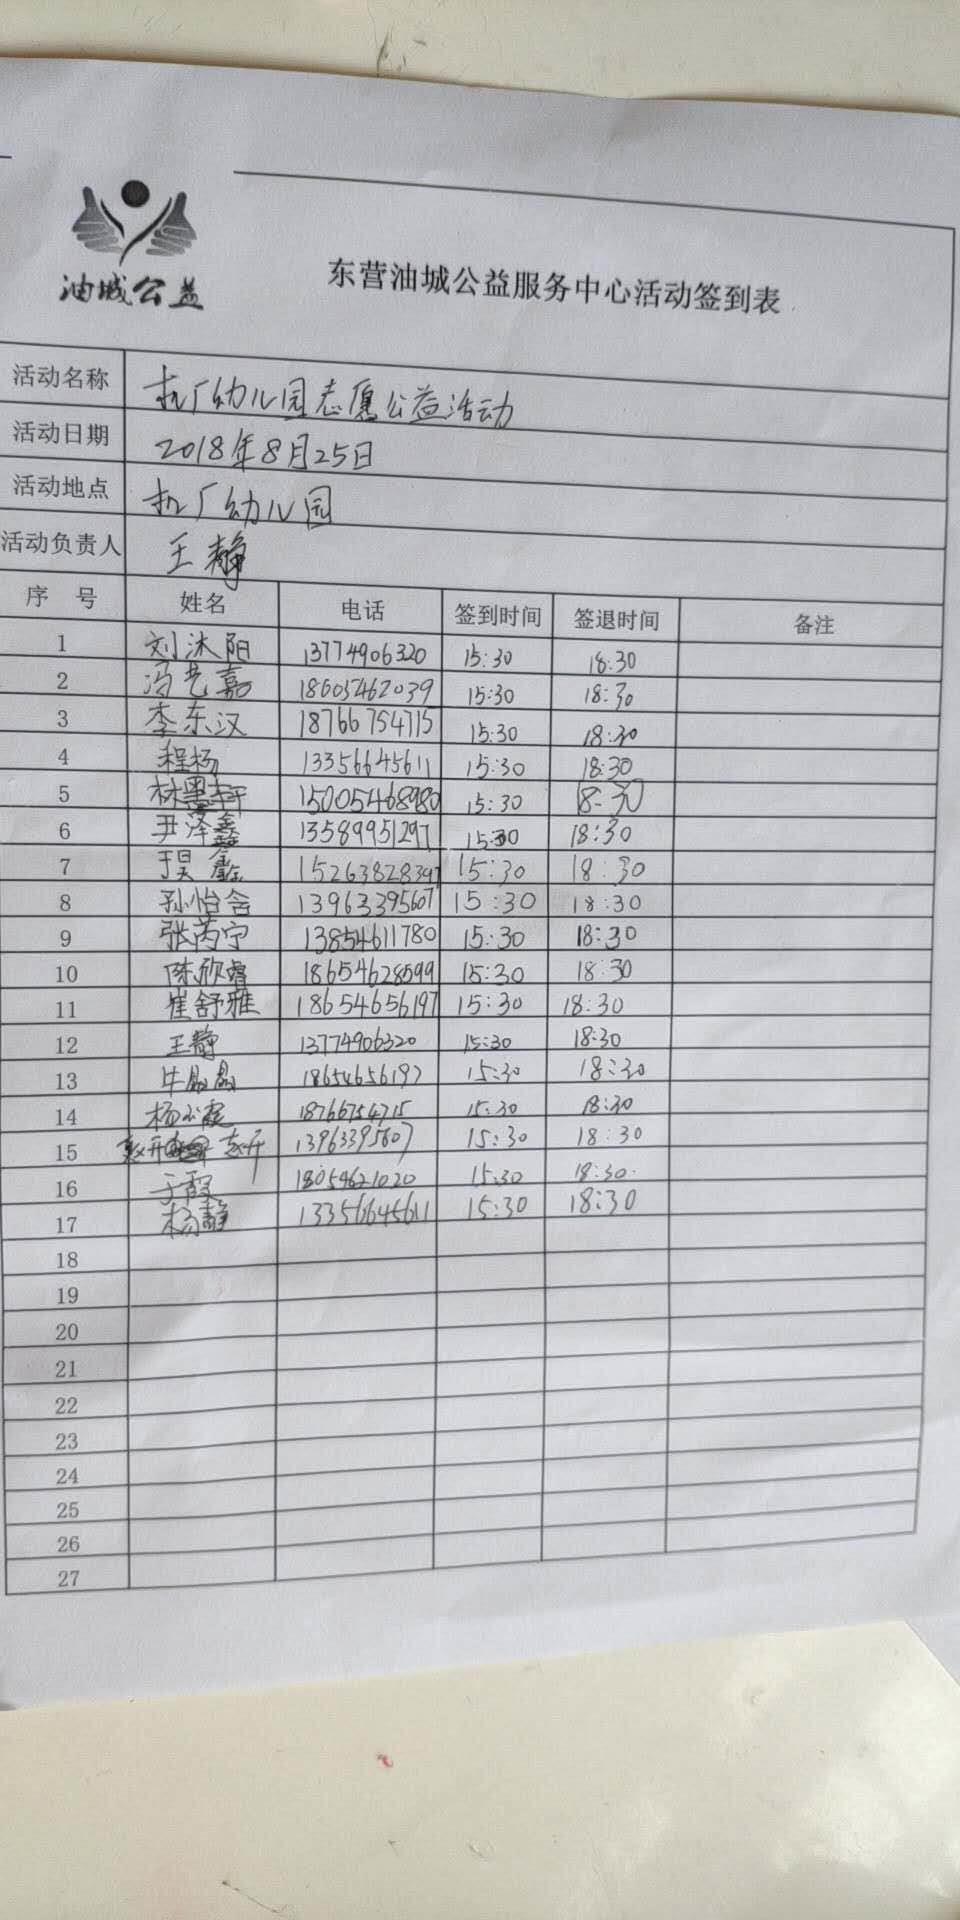 油城公益
东营油城公益服务中心活动签到表
活动名称 机厂幼儿园志愿公益活动
活动日期 2018年8月25日
活动地点 机厂幼儿园
活动负责人 王静
序 号 姓名 电话 签到时间 签退时间 备注
1 刘沐阳 13774906320 15:30 18:30
2 冯艺嘉 18605462039 15:30 18:30
3 李东汉 18766754715 15:30 18:30
4 程杨 13356645611 15:30 18:30
5 林墨轩 15005468980 15:30 18:30
6 尹泽鑫 13589951297 15:30 18:30
7 于昊鑫 15263828397 15:30 18:30
8 孙怡含 13963395607 15:30 18:30
9 张芮宁 13854611780 15:30 18:30
10 陈欣睿 18654628599 15:30 18:30
11 崔舒雅 18654656197 15:30 18:30
12 王静 13774906320 15:30 18:30
13 牛晶晶 18654656197 15:30 18:30
14 杨小霞 18766754715 15:30 18:30
15 赵开 13963395607 15:30 18:30
16 于霞 18054621020 15:30 18:30
17 杨静 13356645611 15:30 18:30
18
19
20
21
22
23
24
25
26
27